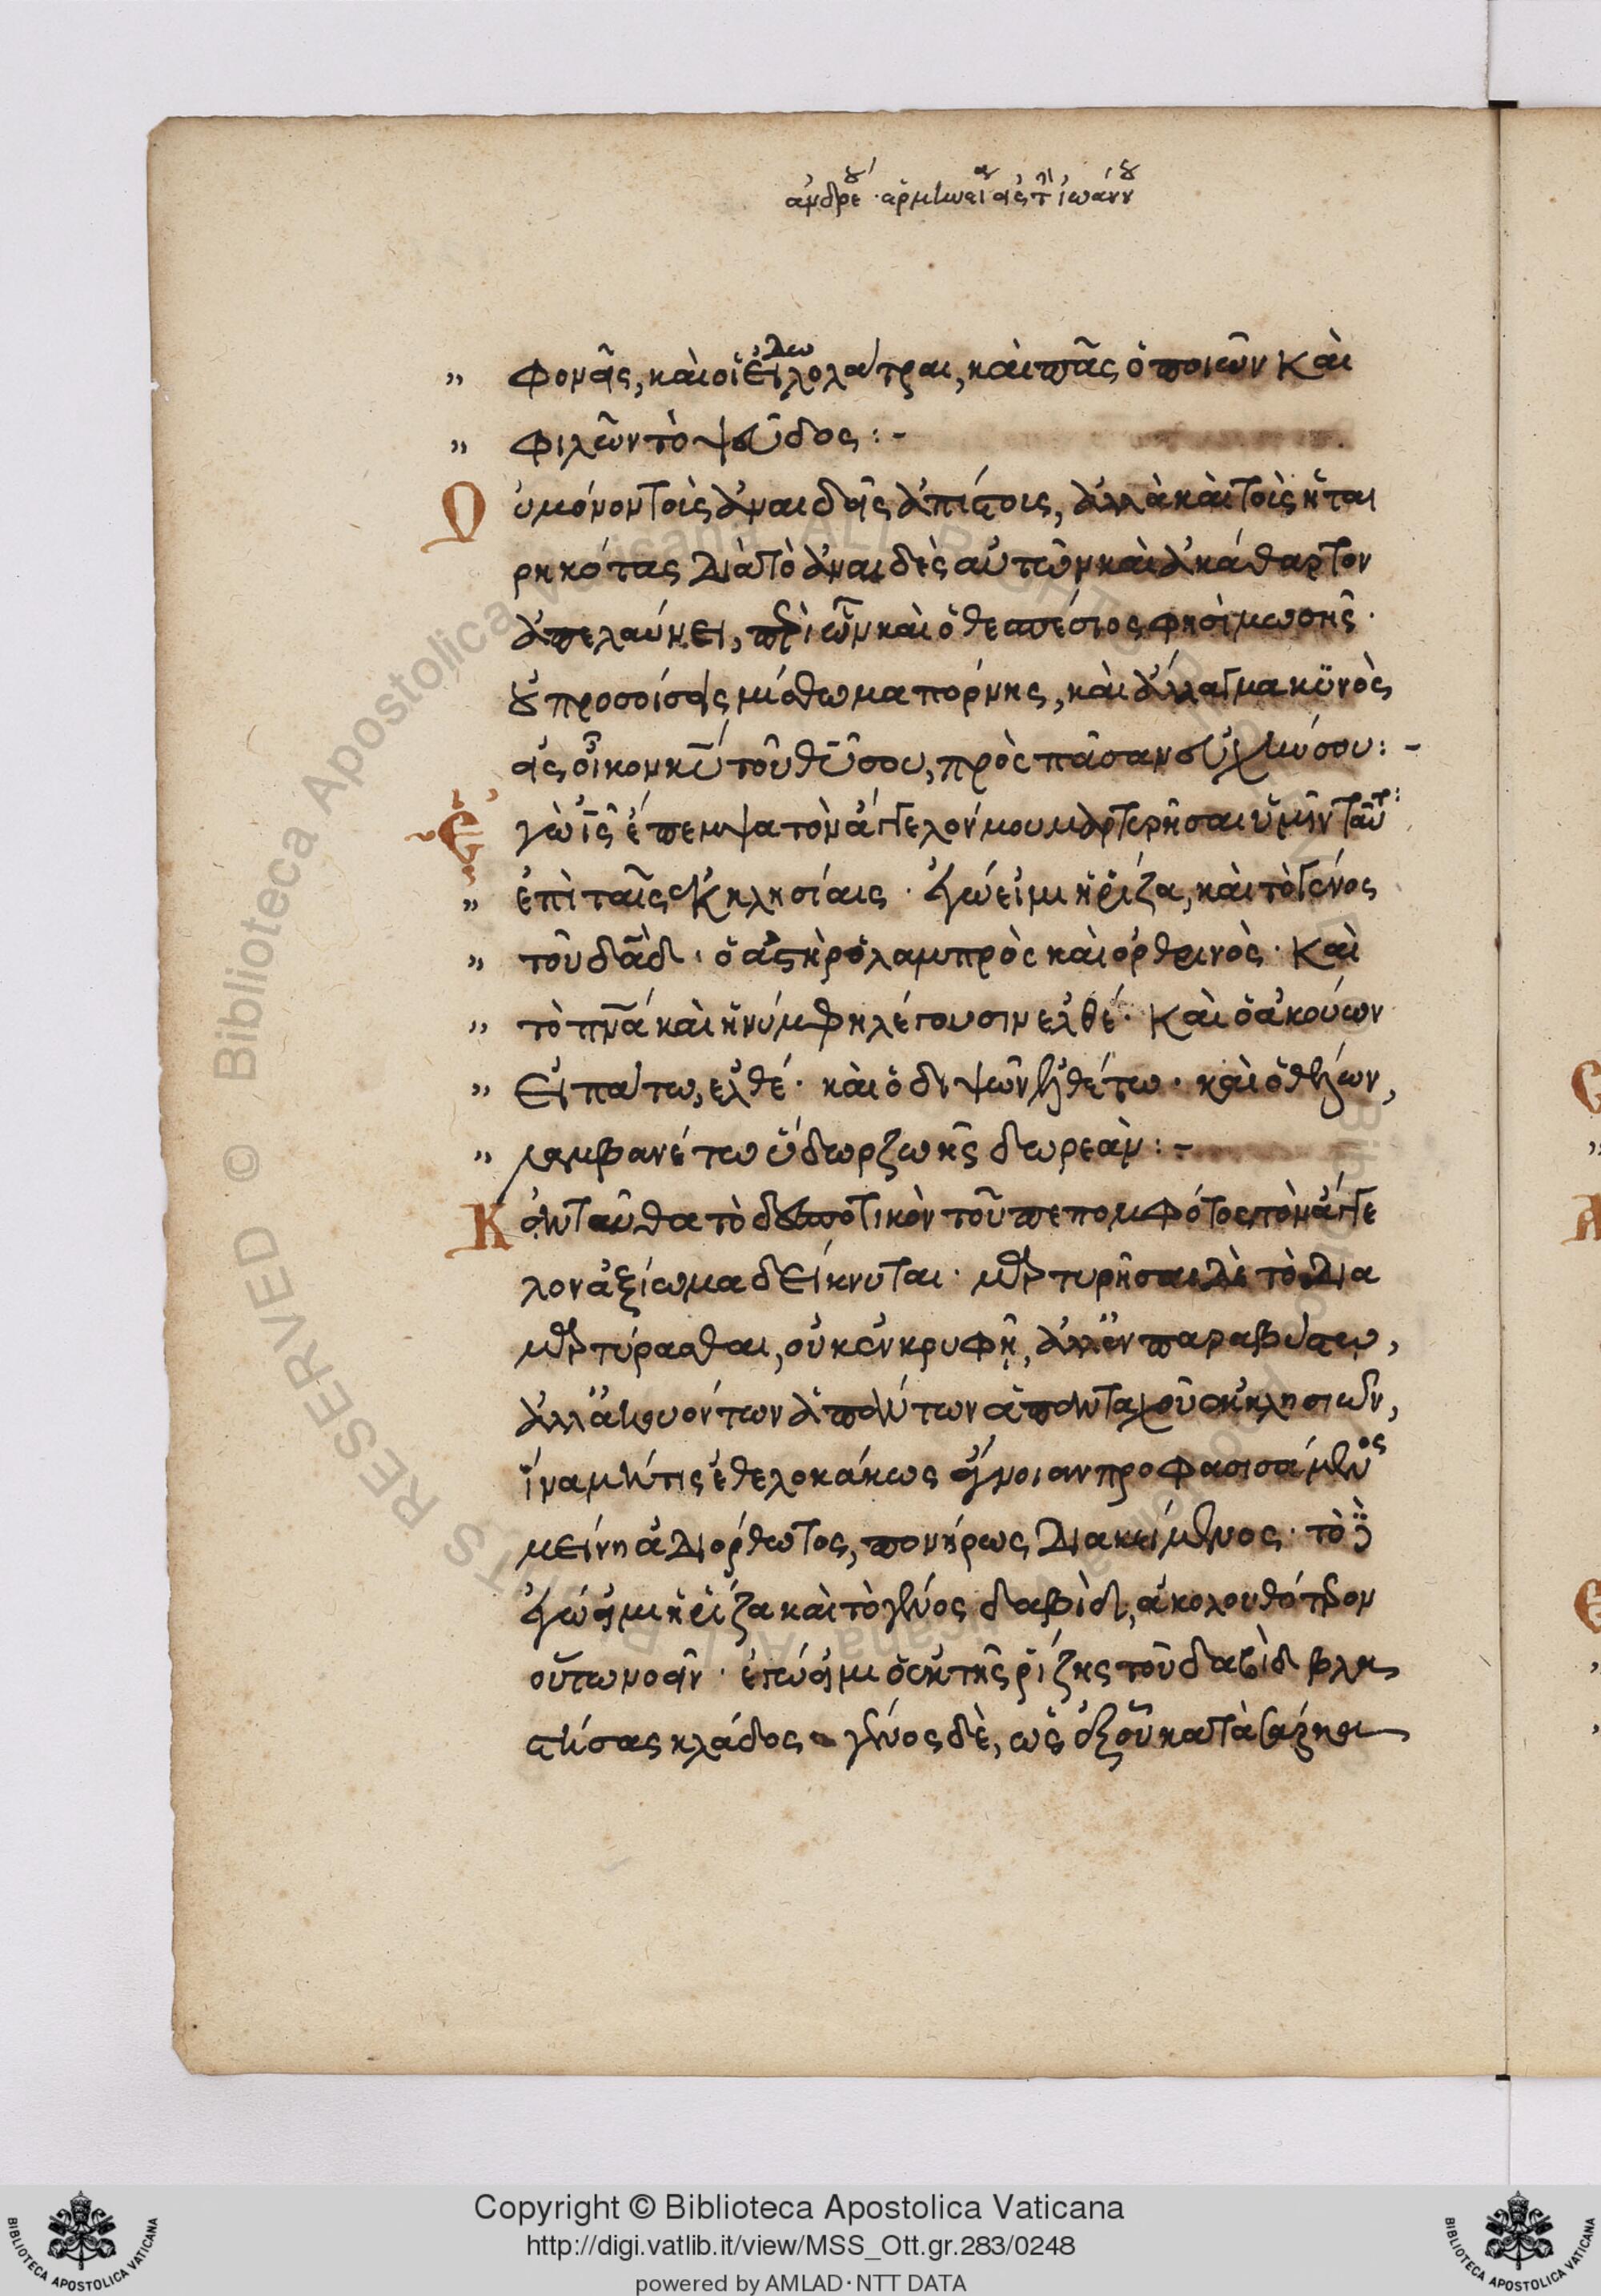 ἀνδρέου· ἑρμηνεία εἰς τὴν ἰωάννου
„ φονεῖς, καὶ οἱ εἰδωλολάτραι, καὶ πᾶς ὁ ποιῶν καὶ
„ φιλῶν τὸ ψεῦδος :-
Οὐ μόνον τοῖς ἀναιδεῖς ἀπίστοις, ἀλλὰ καὶ τοῖς ἡται
ρηκότας διὰ τὸ ἀναιδὲς αὐτῶν καὶ ἀκάθαρτον
ἀπελαύνει, περὶ ὧν καὶ ὁ θεσπέσιος φησὶ μωσῆς·
οὐ προσοίσεις μίσθωμα πόρνης, καὶ ἄλλαγμα κϋνὸς
εἰς οἶκον κυ τοῦ θυ σου, πρὸς πᾶσαν εὐχήν σου :-
Ἐγὼ ις ἔπεμψα τὸν ἄγγελόν μου μαρτυρῆσαι ὑμῖν ταῦτ:
„ ἐπὶ ταῖς ἐκκλησίαις· ἐγώ εἰμι ἡ ῥίζα, καὶ τὸ γένος
„ τοῦ δαδ· ὁ ἀστὴρ ὁ λαμπρὸς καὶ ὀρθρινὸς· Καὶ
„ τὸ πνα καὶ ἡ νύμφη λέγουσιν ἐλθέ· Καὶ ὁ ἀκούων
„ εἰπάτω, ἐλθέ· καὶ ὁ διψῶν ἐλθέτω· καὶ ὁ θέλων,
„ λαμβανέτω ὕδωρ ζωῆς δωρεὰν :-
Κἀνταῦθα τὸ δεσποτικὸν τοῦ πεπομφότος τὸν ἄγγε
λον ἀξίωμα δείκνυται· μαρτυρῆσαι δὲ τὸ δια
μαρτύρασθαι, οὐκ ἐν κρυφῇ, ἀλλ' ἐν παραβύστῳ,
ἀλλ' ἀκουόντων ἁπάντων ἁπανταχοῦ ἐκκλησιῶν,
ἵνα μήτις ἐθελοκάκως ἄγνοιαν προφασισάμενος
μείνη ἀδιόρθωτος, πονήρως διακείμενος· τὸ δὲ
ἐγώ εἰμι ἡ ῥίζα καὶ τὸ γένος δαβὶδ, ἀκολουθότερον
οὕτω νοεῖν· ἐγώ εἰμι ὁ ἐκ τῆς ῥίζης τοῦ δαβὶδ βλα
στήσας κλάδος γένος δὲ, ὡς ἐξ οὗ κατὰ σάρκα